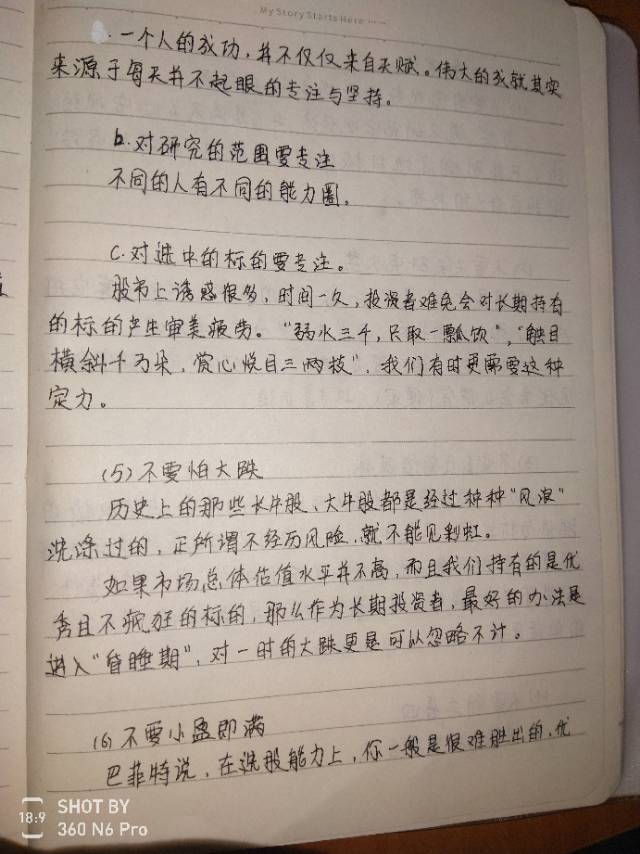 My Story Starts Here
一个人的成功，并不仅仅来自天赋。伟大的成就其实
来源于每天并不起眼的专注与坚持。
b.对研究的范围要专注
不同的人有不同的能力圈。
C.对选中的标的要专注。
股市上诱惑很多，时间一久，投资者难免会对长期持有
的标的产生审美疲劳。“弱水三千，只取一瓢饮”，“触目
横斜千万朵，赏心悦目三两枝”，我们有时更需要这种
定力。
(5)不要怕大跌
历史上的那些长牛股、大牛股都是经过种种“风浪”
洗涤过的，正所谓不经历风险，就不能见彩虹。
如果市场总体估值水平并不高，而且我们持有的是优
秀且不疯狂的标的，那么作为长期投资者，最好的办法是
进入“昏睡期”，对一时的大跌更是可以忽略不计。
(6)不要小盈即满
巴菲特说，在选股能力上，你一般是很难胜出的，优
18:9
SHOT BY
360 N6 Pro